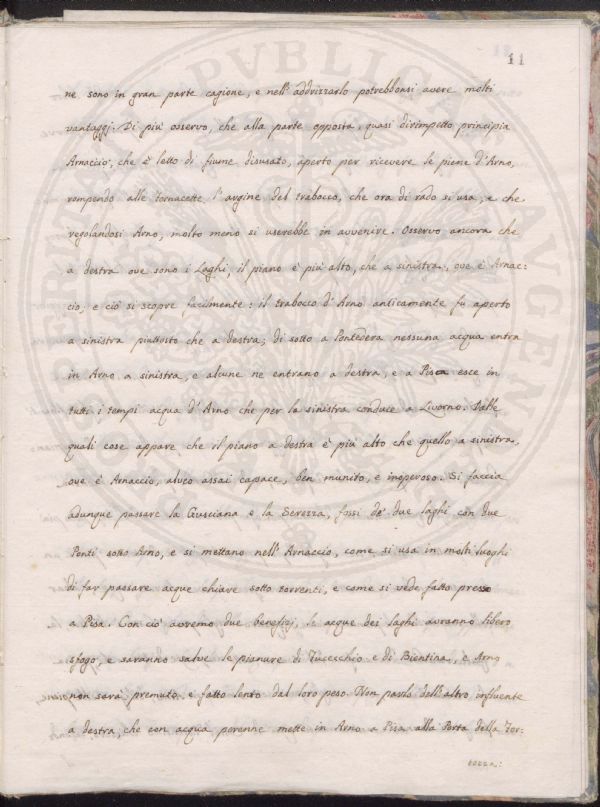 11
ne sono in gran parte cagione, e nell' addrizzarlo potrebbonsi avere molti
vantaggj. Di più osservo, che alla parte opposta, quasi dirimpetto principia
Arnaccio, che è letto di fiume disusato, aperto per ricevere le piene d'Arno,
rompendo alle fornacette l'argine del trabocco, che ora di rado si usa, e che
regolandosi Arno, molto meno si userebbe in avvenire. Osservo ancora che
a destra ove sono i Laghi, il piano è più alto, che a sinistra, ove è Arnac:
cio, e ciò si scopre facilmente: il trabocco d'Arno anticamente fù aperto
a sinistra piuttosto che a destra; di sotto a Pontedera nessuna acqua entra
in Arno a sinistra, e alcune ne entrano a destra, e a Pisa esce in
tutti i tempi acqua d'Arno che per la sinistra conduce a Livorno. Dalle
quali cose appare che il piano a destra è più alto che quello a sinistra,
ove è Arnaccio, alveo assai capace, ben munito, e inoperoso. Si faccia
adunque passare la Gusciana e la Serezza, fossi de' due laghi con due
Ponti sotto Arno, e si mettano nell'Arnaccio, come si usa in molti luoghi
di far passare acque chiare sotto torrenti, e come si vede fatto presso
a Pisa. Con ciò avremo due benefizj, le acque dei laghi avranno libero
sfogo, e saranno salve le pianure di Fucecchio e di Bientina, e Arno
non sarà premuto, e fatto lento dal loro peso. Non parlo dell'altro influente
a destra, che con acqua perenne mette in Arno a Pisa alla Porta della For:
tezza:
PVBLICA
AVGENDA